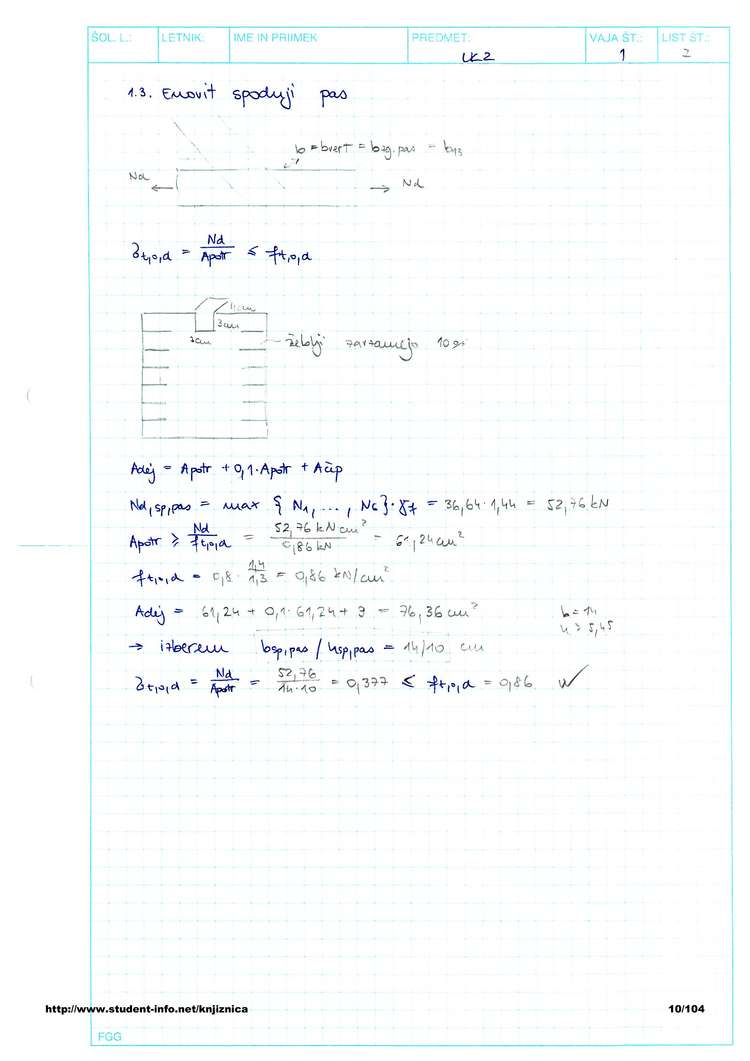 ŠOL. L.: LETNIK: IME IN PRIIMEK PREDMET: VAJA ŠT.: LIST ŠT.:
LK2 1 7
1.3. Enovit spodnji pas
b = bvert = bzg.pas = b13
Nd Nd
σt,0,d = Nd/Apotr ≤ ft,0,d
4cm
3cm
3cm
žeblji zavzamejo 10%
Adej = Apotr + 0,1·Apotr + Ačep
Nd,sp,pas = max { N1, ..., N6 }·γf = 36,64·1,44 = 52,76 kN
Apotr ≥ Nd/ft,0,d = 52,76 kN cm²/0,86 kN = 61,24 cm²
ft,0,d = 0,8 · 1,4/1,3 = 0,86 kN/cm²
Adej = 61,24 + 0,1·61,24 + 9 = 76,36 cm² b = 14
→ izberem bsp,pas / hsp,pas = 14/10 cm h > 5,45
σt,0,d = Nd/Apotr = 52,76/14·10 = 0,377 ≤ ft,0,d = 0,86 ✓
http://www.student-info.net/knjiznica 10/104
FGG